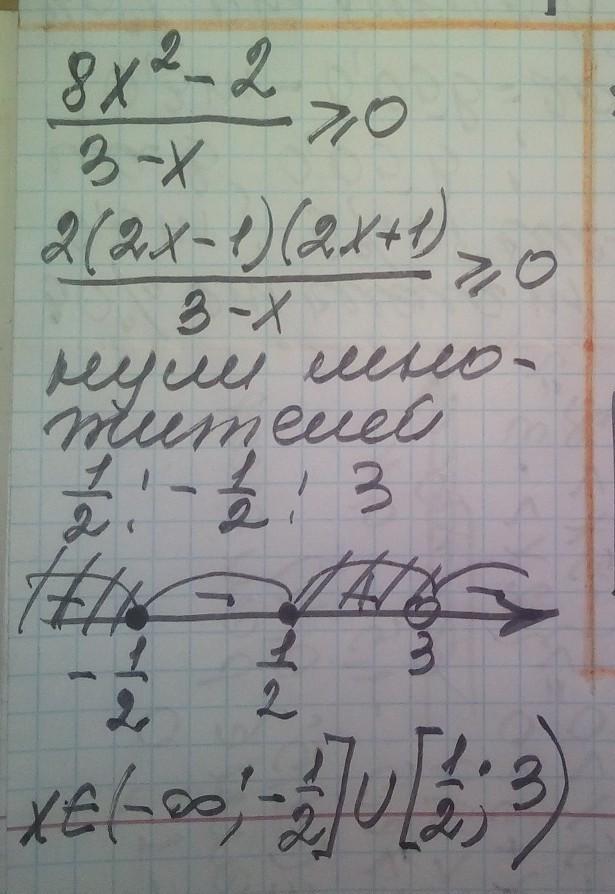 8x² - 2
3 - x
≥ 0
2(2x - 1)(2x + 1)
3 - x
≥ 0
нули мно-
жителей
1/2 ; - 1/2 ; 3
+ - + -
- 1/2 1/2 3
x ∈ (-∞; - 1/2] ∪ [1/2; 3)